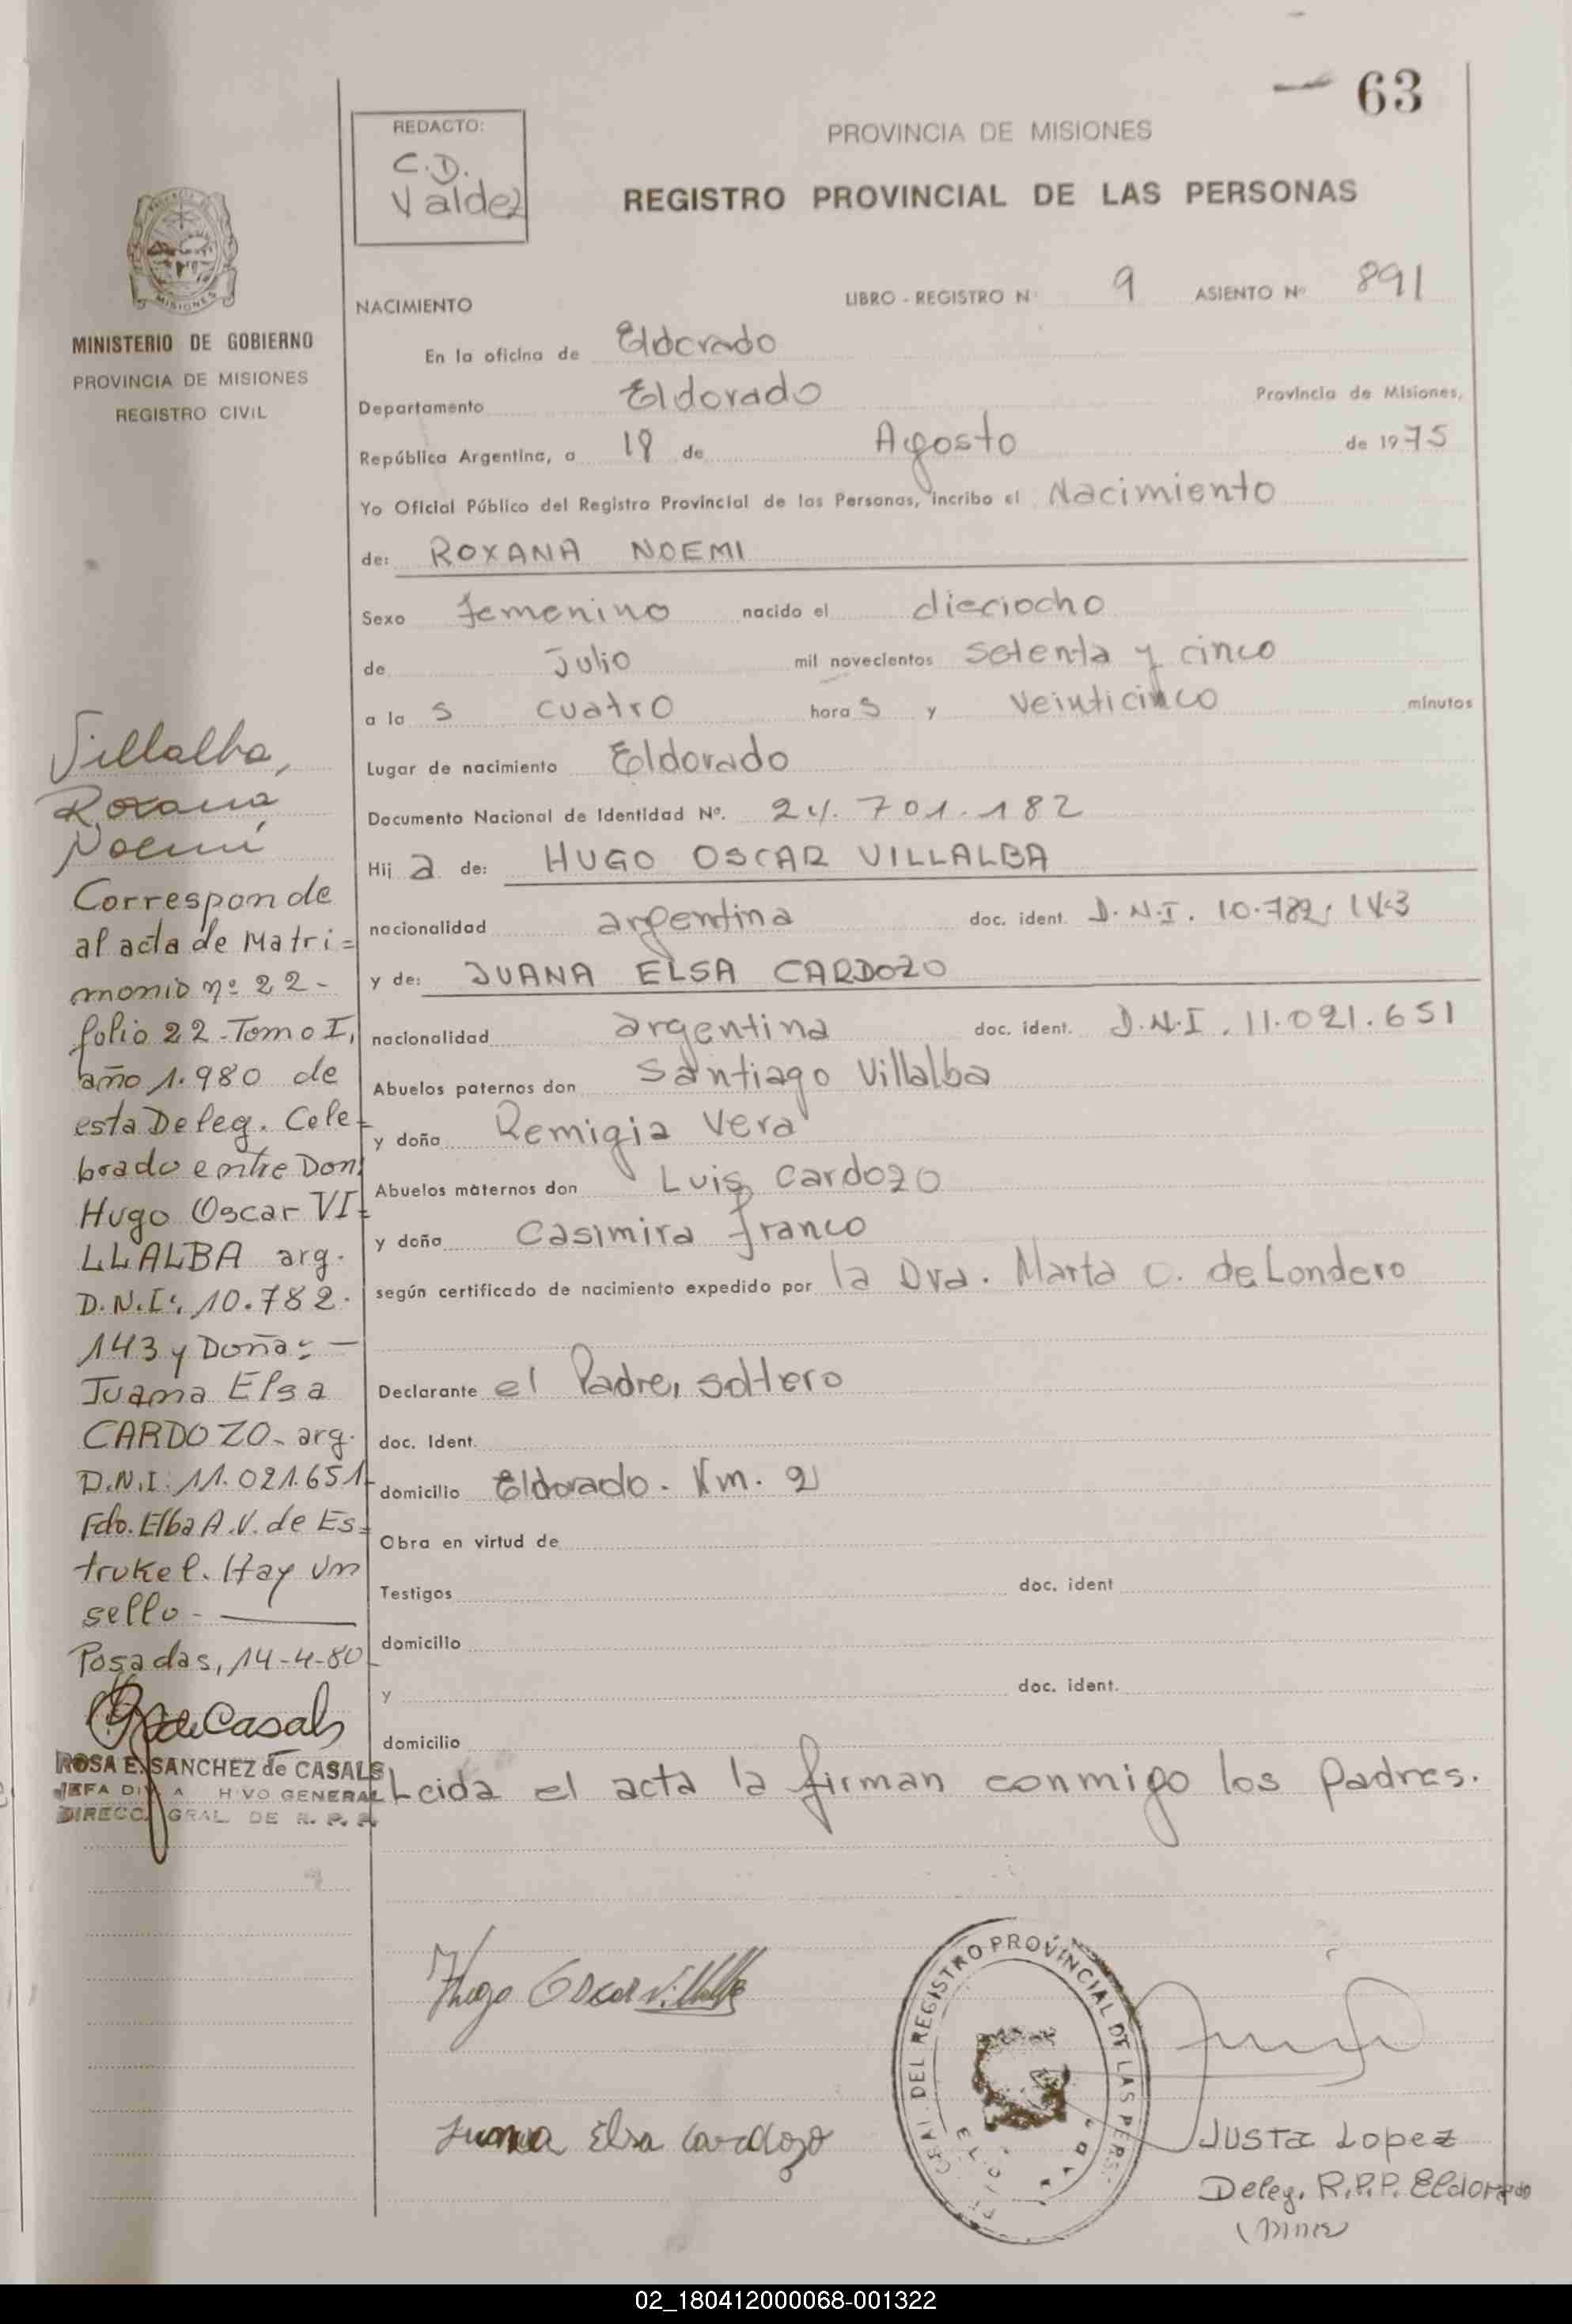 63
REDACTO:
C.D.
Valdez
PROVINCIA DE MISIONES
REGISTRO PROVINCIAL DE LAS PERSONAS
MINISTERIO DE GOBIERNO
PROVINCIA DE MISIONES
REGISTRO CIVIL
NACIMIENTO LIBRO - REGISTRO Nº 9 ASIENTO Nº 891
En la oficina de Eldorado
Departamento Eldorado Provincia de Misiones,
República Argentina, a 18 de Agosto de 1975
Yo Oficial Público del Registro Provincial de las Personas, incribo el Nacimiento
de: ROXANA NOEMI
Sexo femenino nacido el dieciocho
de Julio mil novecientos setenta y cinco
a la s cuatro hora s y veinticinco minutos
Lugar de nacimiento Eldorado
Documento Nacional de Identidad Nº. 24.701.182
Hij a de: HUGO OSCAR VILLALBA
nacionalidad argentina doc. ident. D.N.I. 10.782.143
y de: JUANA ELSA CARDOZO
nacionalidad argentina doc. ident. D.N.I. 11.021.651
Abuelos paternos don Santiago Villalba
y doña Remigia Vera
Abuelos maternos don Luis Cardozo
y doña Casimira franco
según certificado de nacimiento expedido por la Dra. Marta C. de Londero
Declarante el Padre, soltero
doc. Ident.
domicilio Eldorado. Km. 2
Obra en virtud de
Testigos doc. ident
domicilio
y doc. ident.
domicilio
Leida el acta la firman conmigo los padres.
Villalba,
Roxana
Noemí
Corresponde
al acta de Matri=
monio nº 22-
folio 22-Tomo I,
año 1.980 de
esta Deleg. Cele-
brado entre Don:
Hugo Oscar VI-
LLALBA arg.
D.N.I: 10.782.
143 y Doña: -
Juana Elsa
CARDOZO- arg.
D.N.I: 11.021.651-
Fdo. Elba A.V. de Es=
trukel. Hay un
sello-
Posadas, 14-4-80
de Casals
ROSA E. SANCHEZ de CASALS
JEFA DIV A HIVO GENERAL
DIRECC. GRAL DE R. P. P.
Hugo Oscar Villalba
Juana Elsa Cardozo
DEL REGISTRO PROVINCIAL DE LAS PERS.
Justa Lopez
Deleg. R.P.P. Eldorado
02_180412000068-001322